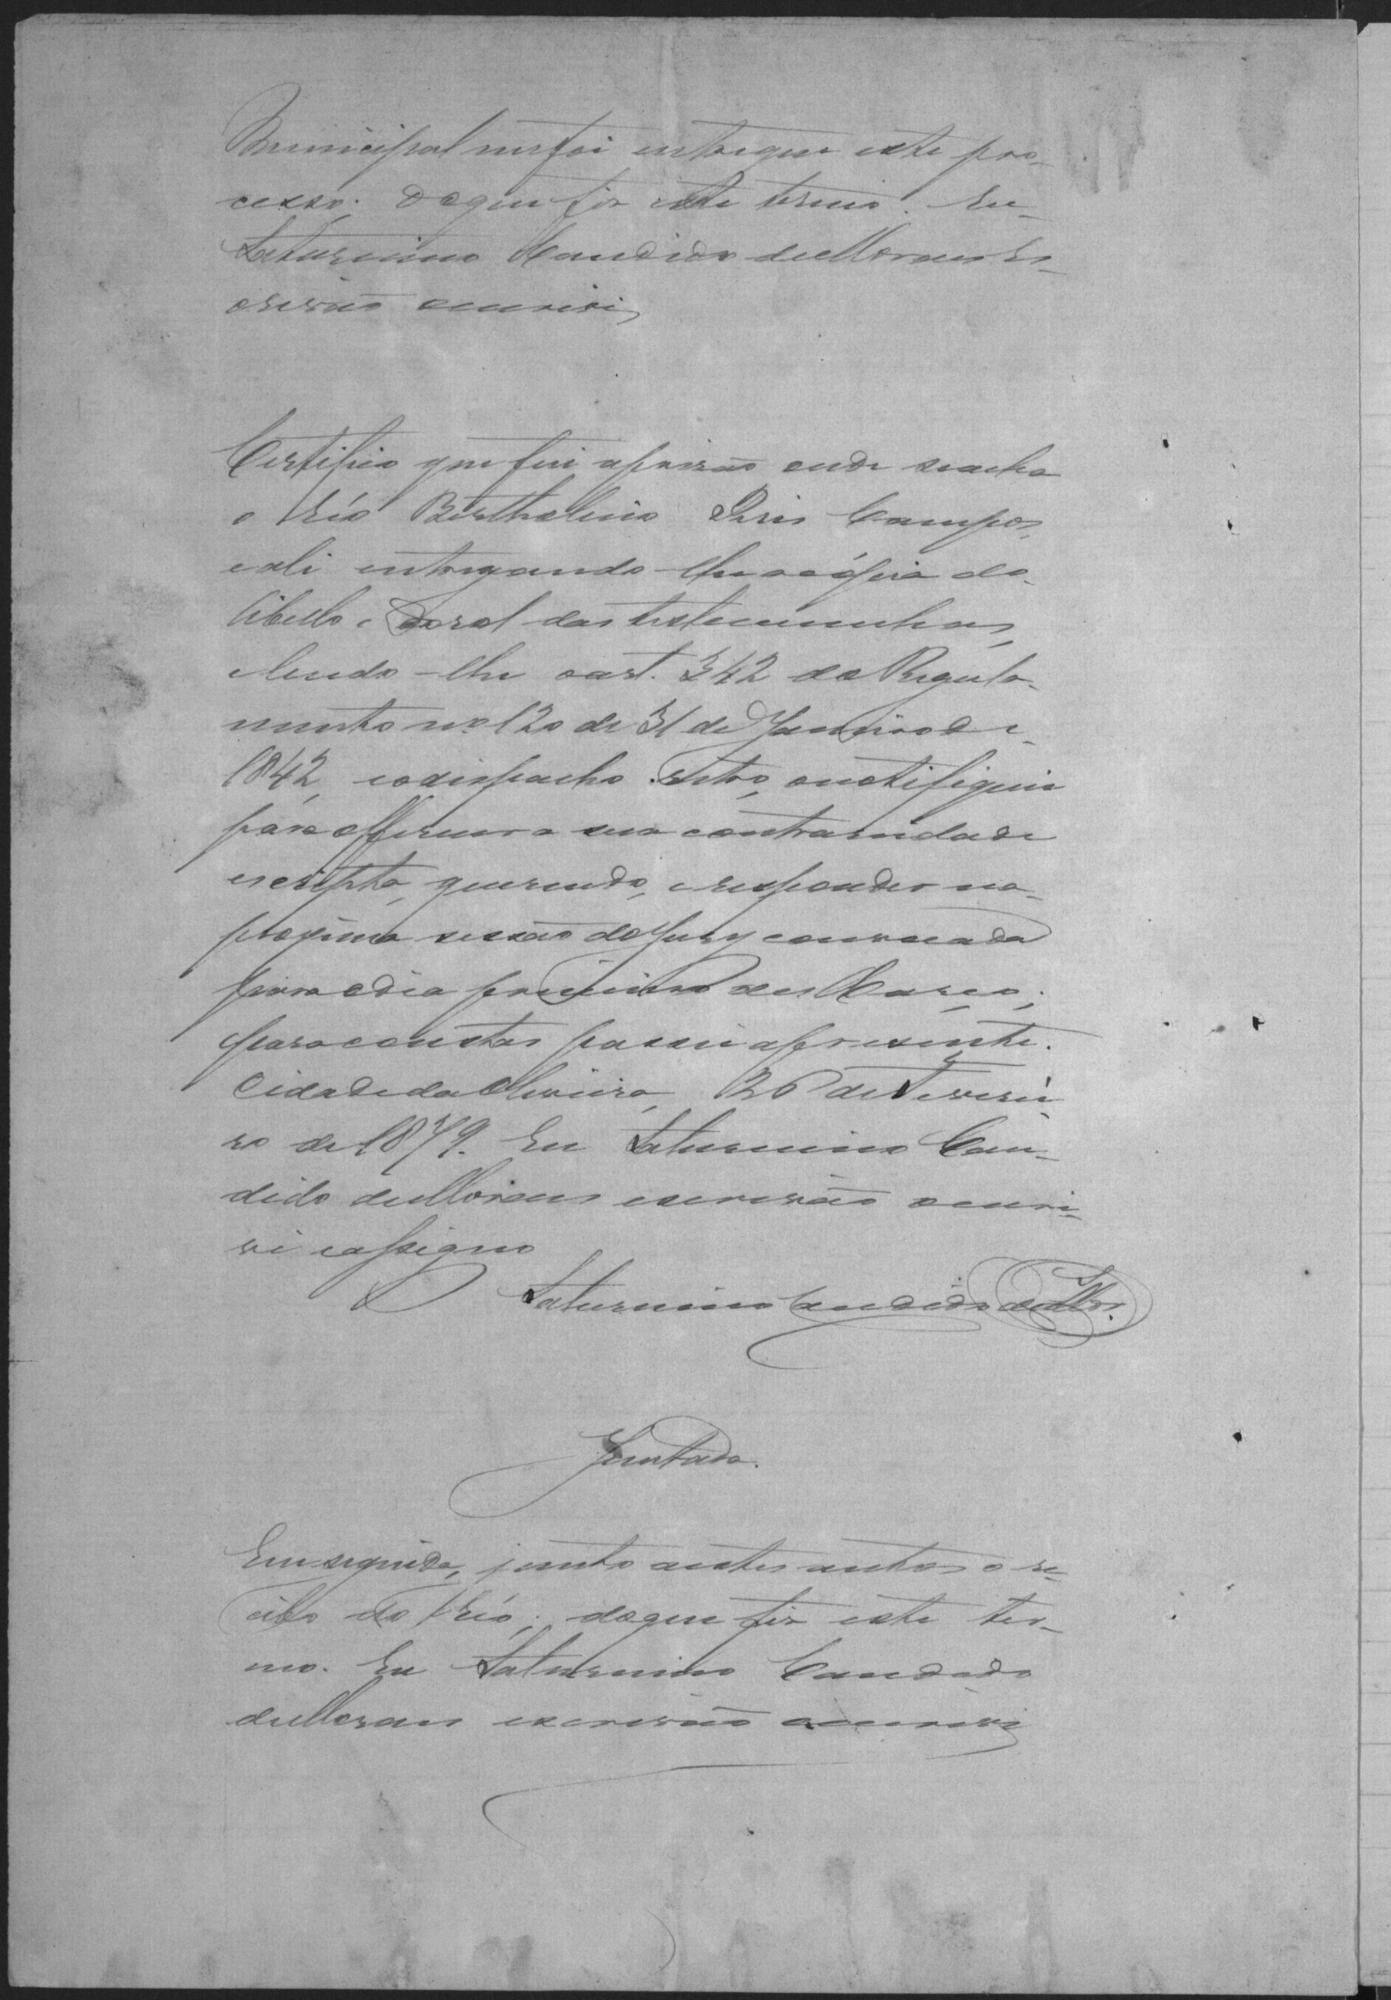 Municipal me foi entregue este pro-
cesso; do que fiz este termo. Eu
Saturnino Candido de Moraes es-
crivão o escrivi,
Certifico que fui a prisão onde se acha
o Réo Bertholino Pires Campos,
e ali entregando-lhe a cópia do
libello e do rol das testemunhas,
e lendo-lhe o art. 342 do Regula-
mento nº 120 de 31 de Janeiro de
1842, e o despacho retro, o notifiquei
para offerecer a sua contrariedade
escripta, querendo, e responder na
proxima sessão do Jury convocada
para o dia primeiro de Março;
para constar passei a presente.
Cidade da Oliveira, 26 de Feverei-
ro de 1879. Eu Saturnino Can-
dido de Moraes escrivão o escri-
vi e assigno
Saturnino Candido de Mor.
Juntada.
Em seguida, junto a estes autos o re-
cibo do Réo; do que fiz este ter-
mo. Eu Saturnino Candido
de Moraes escrivão o escrivi